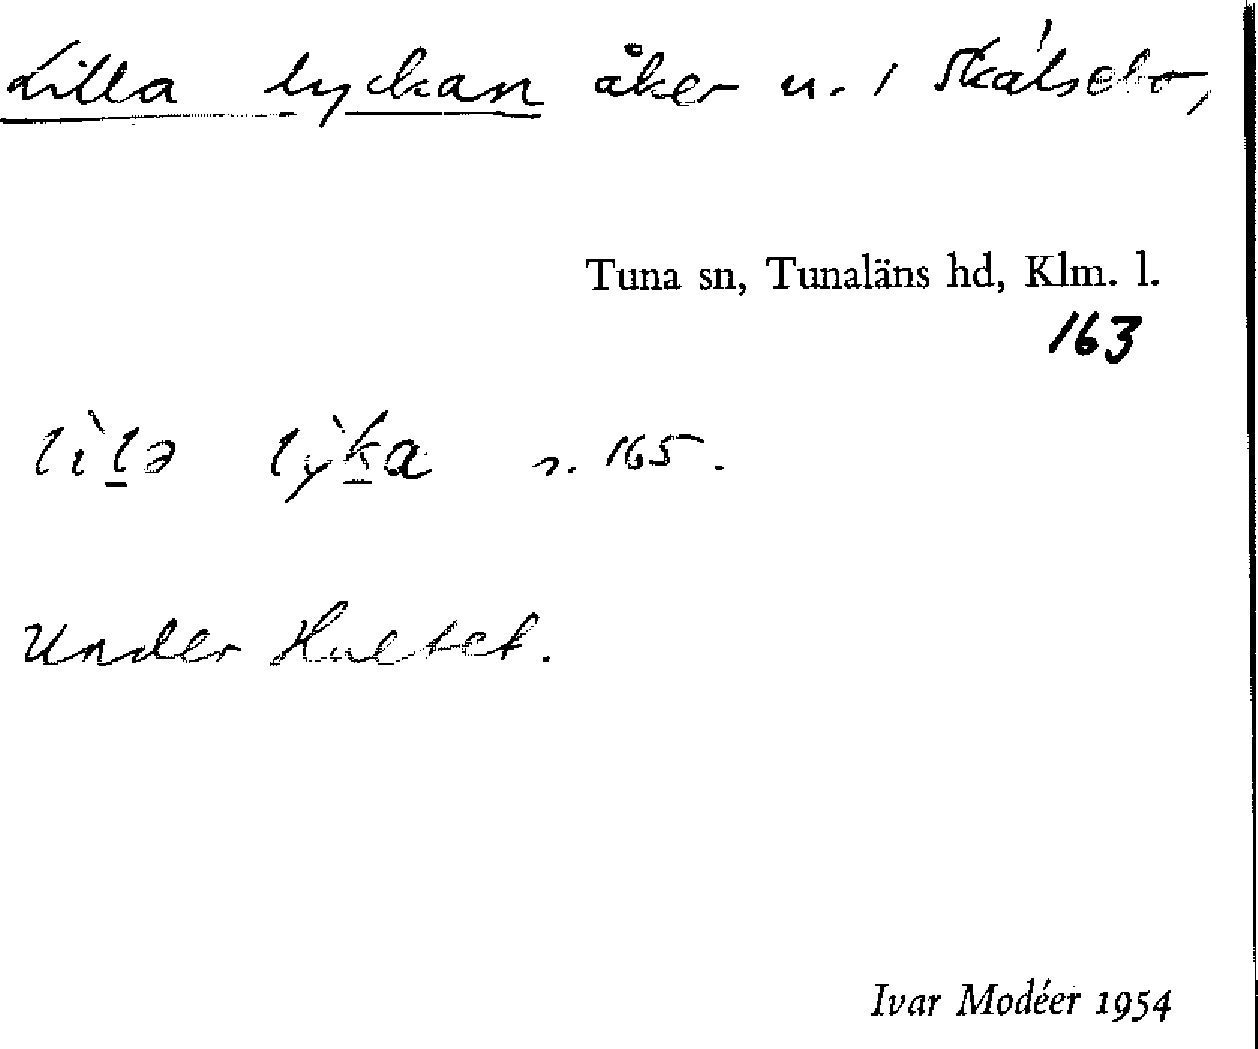 Lilla lyckan åker u. i Skälsebo,
Tuna sn, Tunaläns hd, Klm. l.
163
lìlə lỳka s. 165.
Under Hultet.
Ivar Modéer 1954